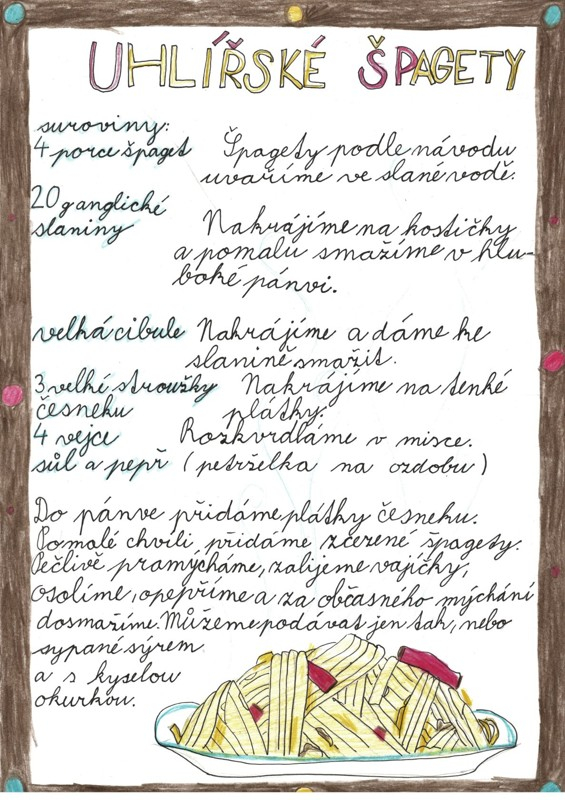 UHLÍŘSKÉ ŠPAGETY
suroviny:
4 porce špaget Špagety podle návodu
uvaříme ve slané vodě.
20 g anglické
slaniny Nakrájíme na kostičky
a pomalu smažíme v hlu-
boké pánvi.
velká cibule Nakrájíme a dáme ke
slanině smažit.
3 velké stroužky Nakrájíme na tenké
česneku plátky.
4 vejce Rozkvrdláme v misce.
sůl a pepř (petrželka na ozdobu)
Do pánve přidáme plátky česneku.
Po malé chvíli, přidáme, zcezené špagety.
Pečlivě promycháme, zalijeme vajíčky,
osolíme, opepříme a za občasného mýchání
dosmažíme. Můžeme podávat jen tak, nebo
sypané sýrem
a s kyselou
okurkou.